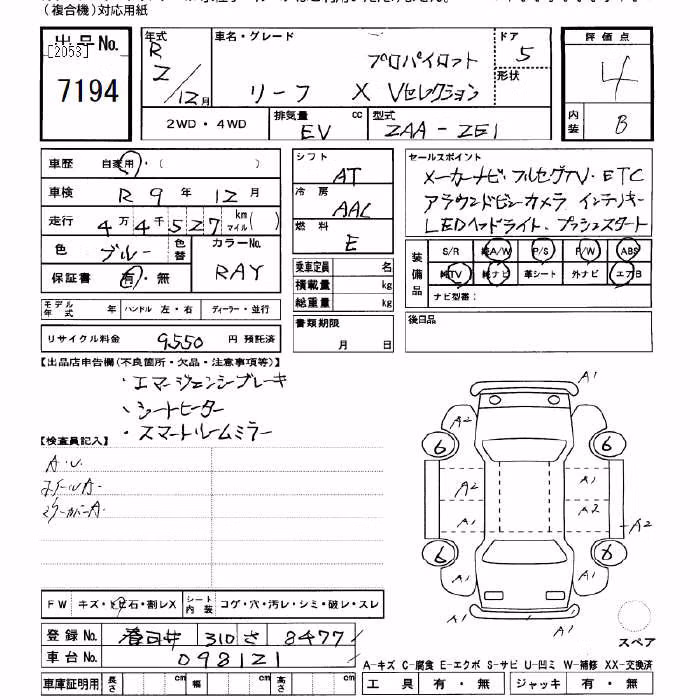 （複合機）対応用紙
出品No.
[2053]
7194
年式
R
2/12月
車名・グレード
プロパイロット
リーフ X Vセレクション
ドア
5
形状
評価点
4
内装
B
2WD・4WD
排気量
cc
EV
型式
ZAA-ZE1
車歴 自家用・( )
車検 R 9年 12月
走行 4万4千527 km マイル( )
色 ブルー 色替
カラーNo.
RAY
保証書 有・無
モデル年式 年 ハンドル 左・右 ディーラー・並行
リサイクル料金 9550 円 預託済
シフト
AT
冷房
AAC
燃料
E
乗車定員 名
積載量 kg
総重量 kg
書類期限
月 日
セールスポイント
メーカーナビ・フルセグTV・ETC
アラウンドビューカメラ インテリキー
LEDヘッドライト・プッシュスタート
装備品
S/R 純A/W P/S P/W ABS
純TV 純ナビ 革シート 外ナビ エアB
ナビ型番：
後日品
【出品店申告欄(不良箇所・欠品・注意事項等)】
・エマージェンシーブレーキ
・シートヒーター
・スマートルームミラー
【検査員記入】
A.U.
A1
A2
A1
6
6
A2
A1
A2
A1
A2
6
6
A1
A1
A1
スペア
FW キズ・トビ石・割レX
シート内装 コゲ・穴・汚レ・シミ・破レ・スレ
登録No. 春日井 310 さ 8477
車台No. 098121
車庫証明用 長さ cm 幅 cm 高さ cm
A-キズ C-腐食 E-エクボ S-サビ U-凹ミ W-補修 XX-交換済
工具 有・無 ジャッキ 有・無